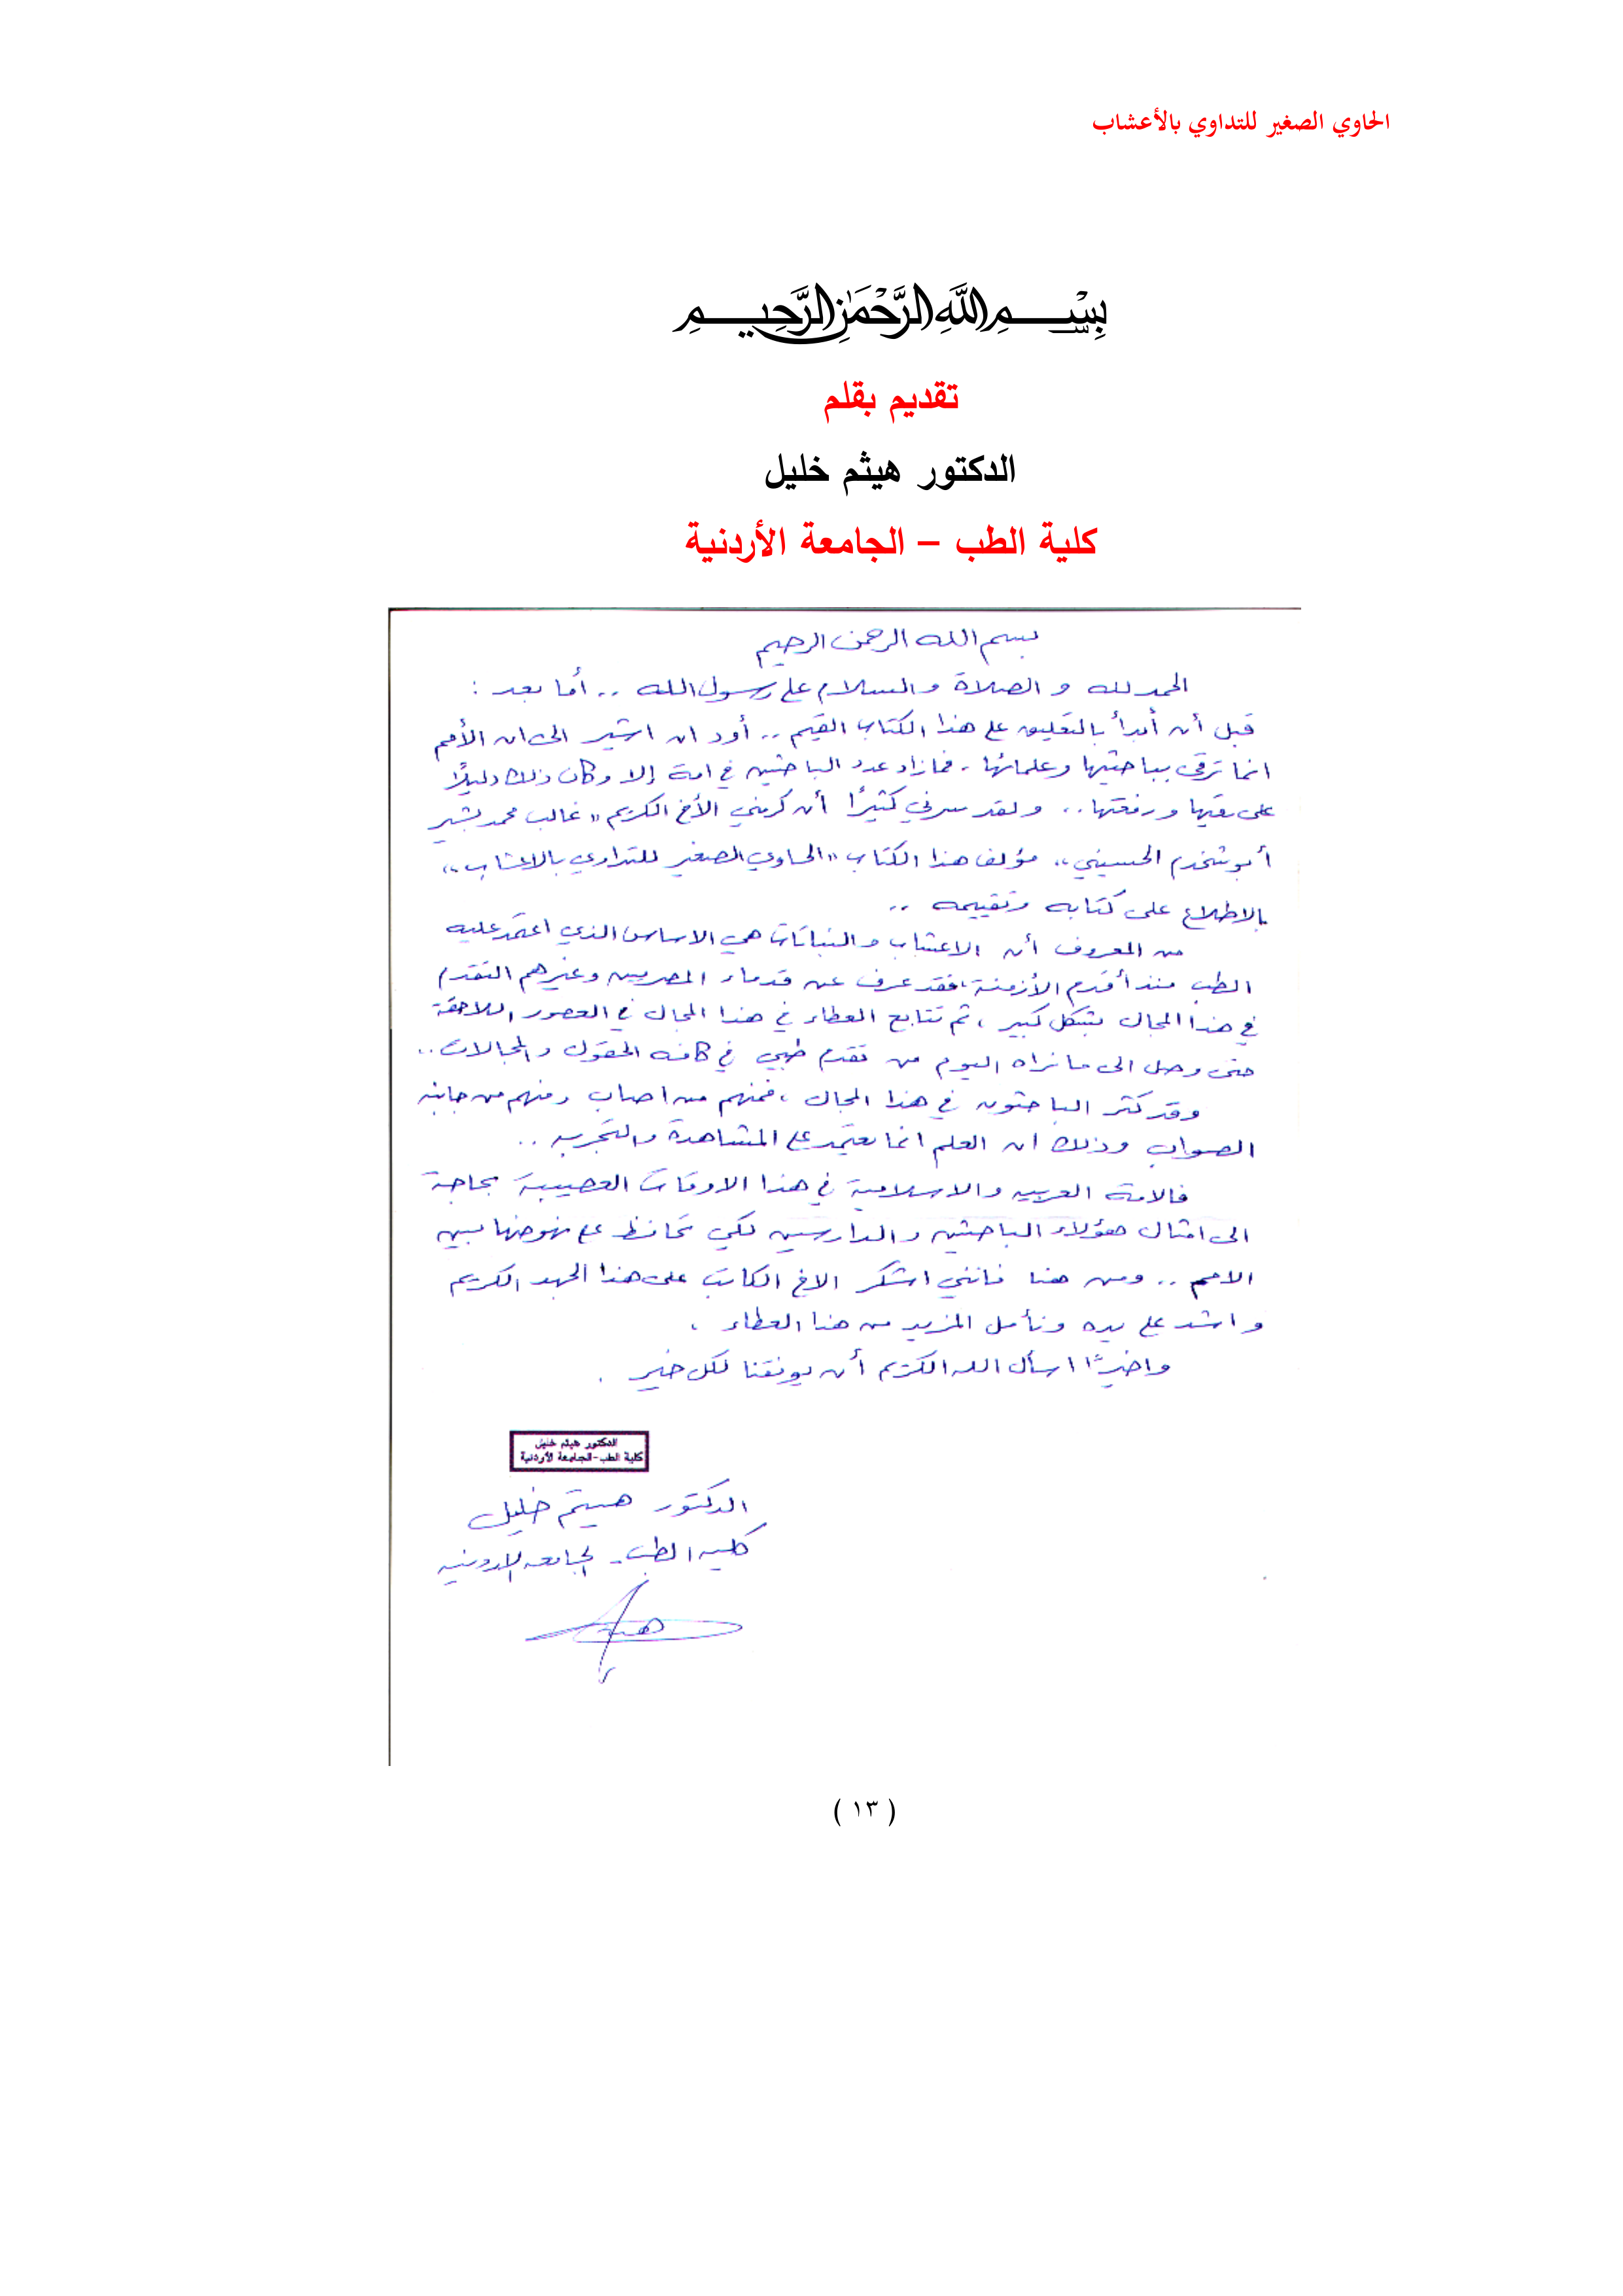 الحاوي الصغير للتداوي بالأعشاب
بِسْمِ اللَّهِ الرَّحْمَٰنِ الرَّحِيمِ
تقديم بقلم
الدكتور هيثم خليل
كلية الطب – الجامعة الأردنية
بسم الله الرحمن الرحيم
الحمد لله و الصلاة و السلام على رسول الله .. أما بعد :
قبل أن أبدأ بالتعليق على هذا الكتاب القيم .. أود ان اشير الى ان الأمم
انما ترقى بباحثيها وعلمائها ، فمازاد عدد الباحثين في امة إلا وكان ذلك دليلاً
على رقيها ورفعتها .. ولقد سرني كثيرًا أن كرمني الأخ الكريم "غالب محمد بشير
أبو شخدم الحسيني" مؤلف هذا الكتاب "الحاوي الصغير للتداوي بالاعشاب"
بالاطلاع على كتابه وتقييمه ..
من المعروف أن الاعشاب والنباتات هي الاساس الذي اعتمد عليه
الطب منذ أقدم الأزمنة، فقد عرف عن قدماء المصريين وغيرهم التقدم
في هذا المجال بشكل كبير ، ثم تتابع العطاء في هذا المجال في العصور اللاحقة
حتى وصل الى ما نراه اليوم من تقدم طبي في كافه الحقول والمجالات ..
وقد كثر الباحثون في هذا المجال ، فمنهم من اصاب ومنهم من جانبه
الصواب وذلك ان العلم انما يعتمد على المشاهدة والتجربه ..
فالامة العربيه والاسلامية في هذا الاوقات العصيبة بحاجة
الى امثال هؤلاء الباحثين والدارسين لكي تحافظ على نهوضها بين
الامم .. ومن هنا فانني اشكر الاخ الكاتب على هذا الجهد الكريم
واشد على يده ونأمل المزيد من هذا العطاء .
واخيرًا اسأل الله الكريم أن يوفقنا لكل خير .
الدكتور هيثم خليل
كلية الطب-الجامعة الأردنية
الدكتور هيثم خليل
كليه الطب - الجامعه الاردنيه
( ١٣ )